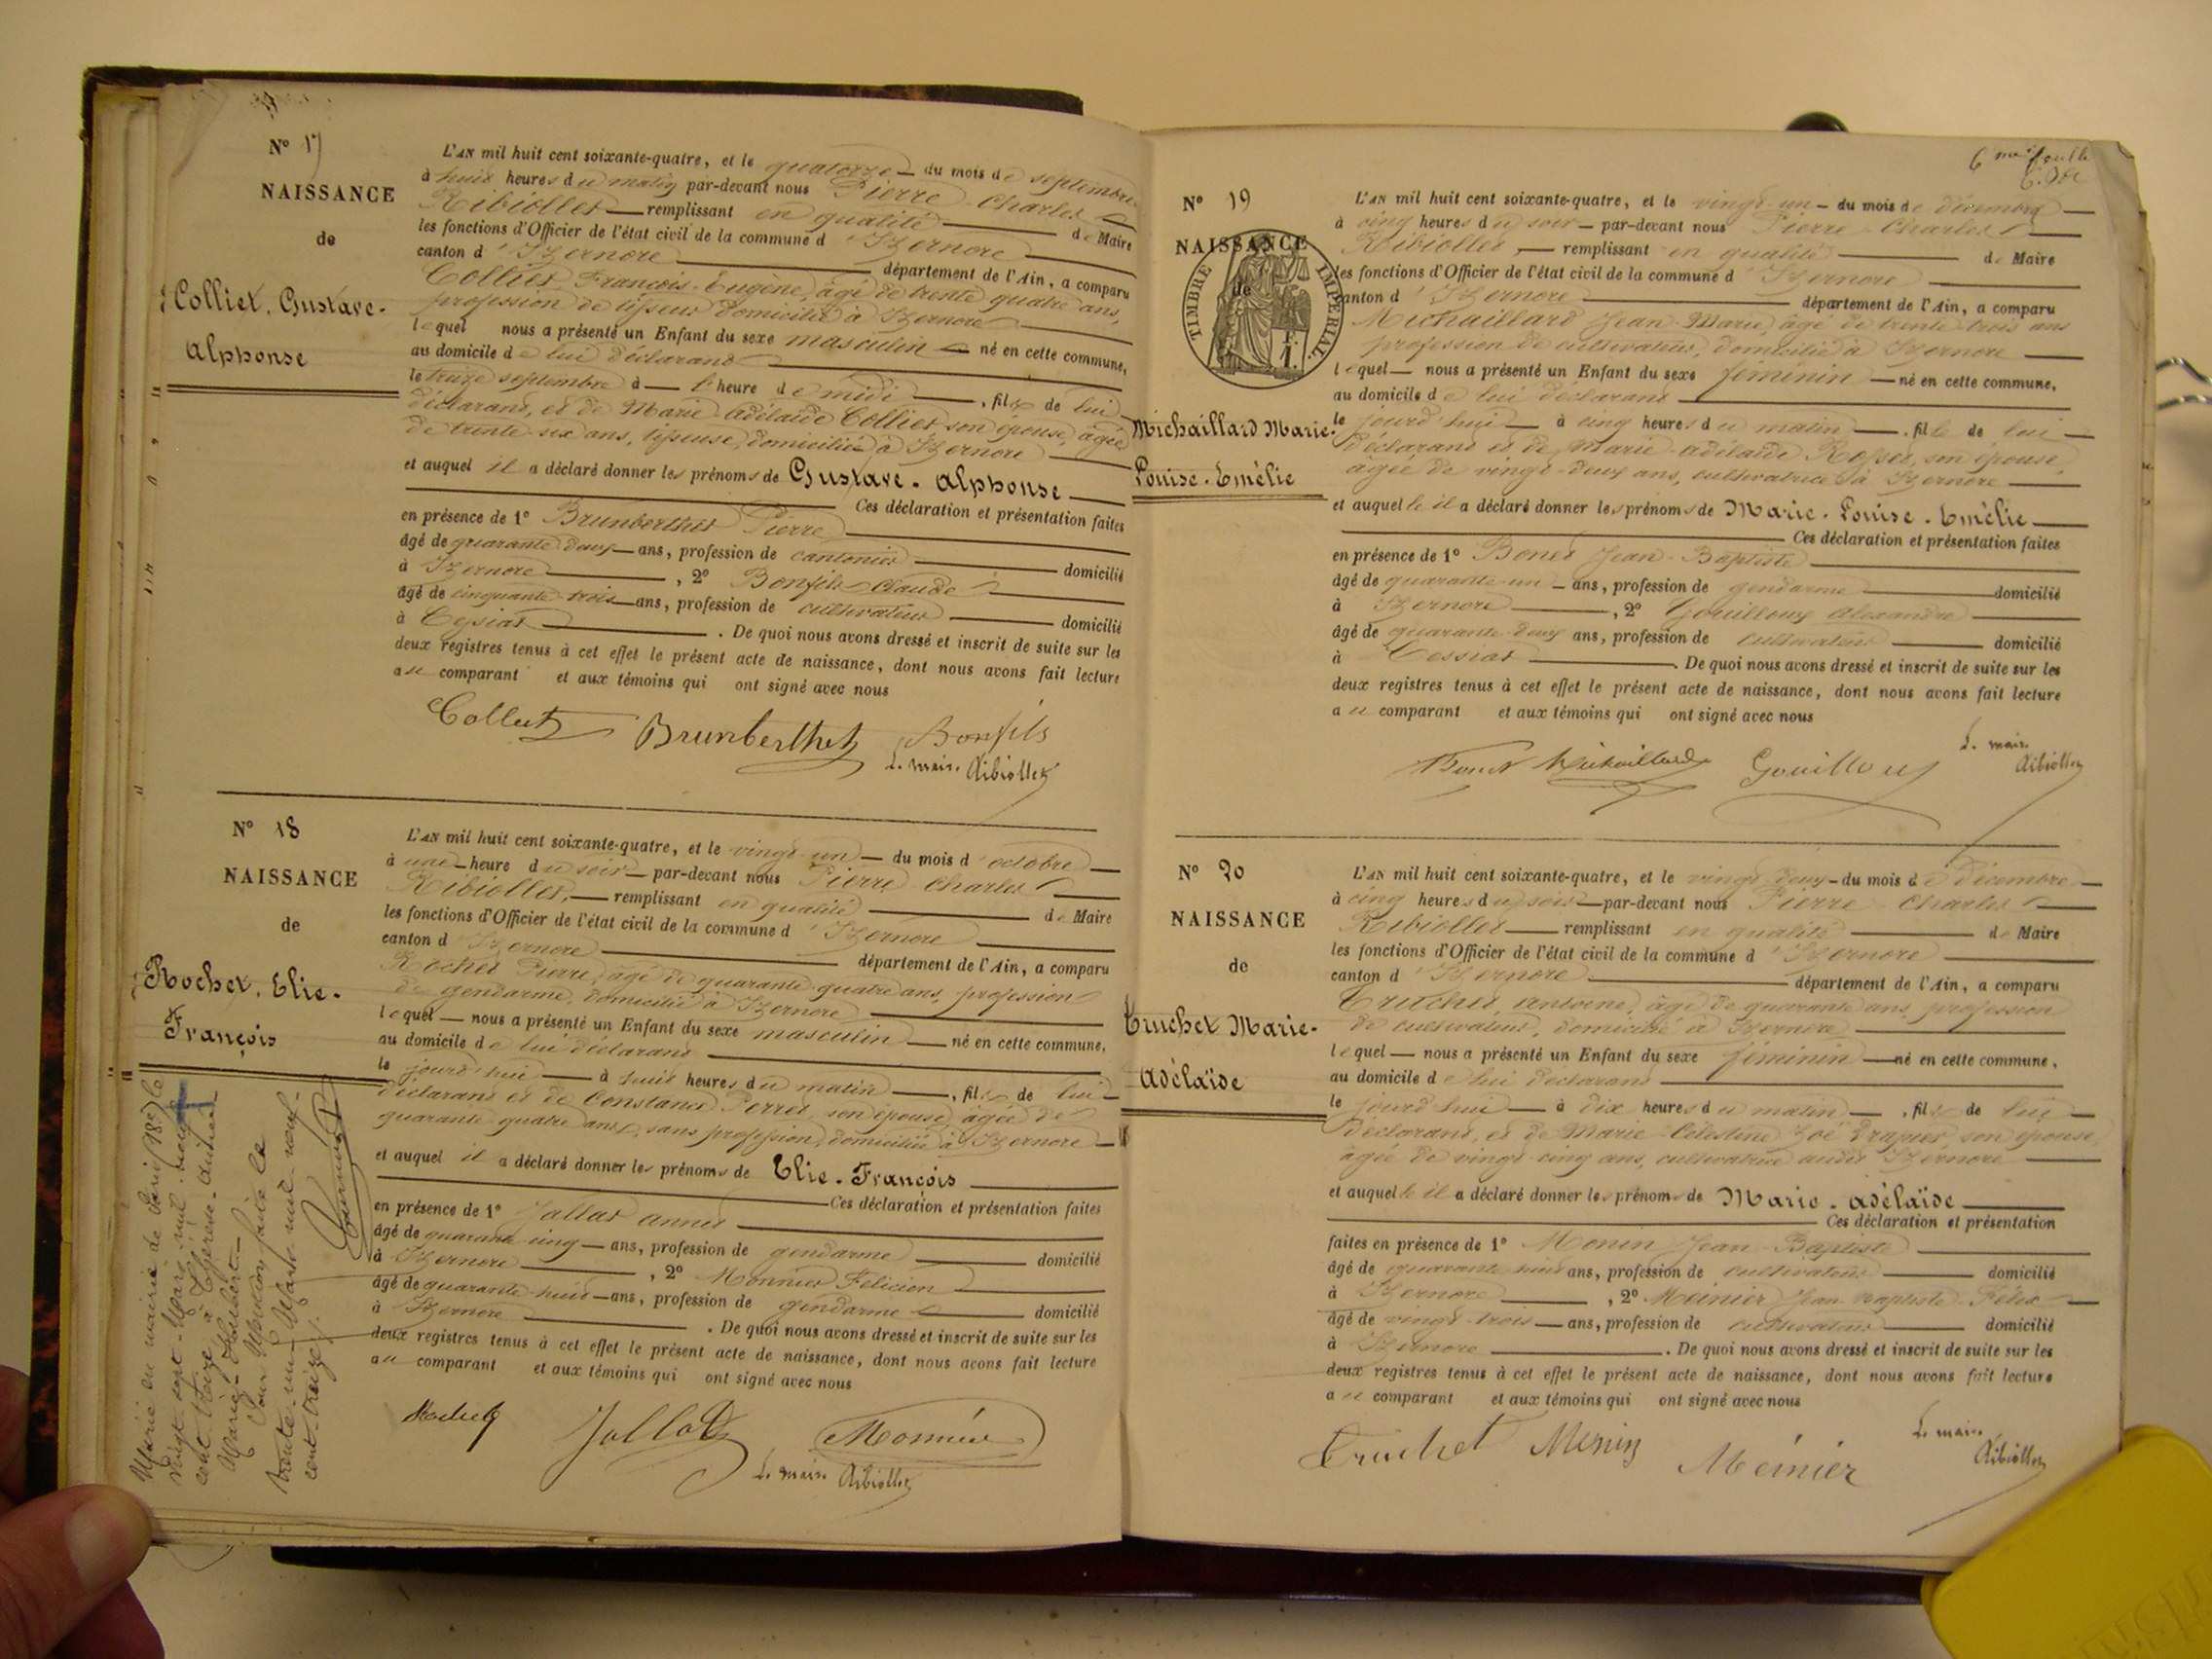 N° 17
NAISSANCE
de
Colliet, Gustave-
Alphonse
L'AN mil huit cent soixante-quatre, et le quatorze du mois de septembre
à huit heures du matin par-devant nous Pierre Charles
Ribiollet remplissant en qualité de Maire
les fonctions d'Officier de l'état civil de la commune d'Izernore
canton d'Izernore département de l'Ain, a comparu
Colliet François-Eugène, âgé de trente quatre ans,
profession de tisseur domicilié à Izernore
lequel nous a présenté un Enfant du sexe masculin né en cette commune,
au domicile de lui déclarant
le treize septembre à l'heure de midi, fils de lui
déclarant, et de Marie Adélaïde Colliet son épouse, âgée
de trente-six ans, tisseuse, domiciliée à Izernore
et auquel il a déclaré donner les prénoms de Gustave-Alphonse
Ces déclaration et présentation faites
en présence de 1° Brunberthet Pierre
âgé de quarante deux ans, profession de cantonier domicilié
à Izernore, 2° Bonfils Claude
âgé de cinquante-trois ans, profession de cultivateur domicilié
à Ceysiat. De quoi nous avons dressé et inscrit de suite sur les
deux registres tenus à cet effet le présent acte de naissance, dont nous avons fait lecture
au comparant et aux témoins qui ont signé avec nous
Colliet Brunberthet Bonfils
Le maire Ribiollet
N° 18
NAISSANCE
de
Rochet, Elie-
François
L'AN mil huit cent soixante-quatre, et le vingt-un du mois d'octobre
à une heure du soir par-devant nous Pierre Charles
Ribiollet, remplissant en qualité de Maire
les fonctions d'Officier de l'état civil de la commune d'Izernore
canton d'Izernore département de l'Ain, a comparu
Rochet Pierre, âgé de quarante-quatre ans, profession
de gendarme, domicilié à Izernore
lequel nous a présenté un Enfant du sexe masculin né en cette commune,
au domicile de lui déclarant
le jourd'hui à huit heures du matin, fils de lui
déclarant et de Constance Perret, son épouse, âgée de
quarante-quatre ans, sans profession, domiciliée à Izernore
et auquel il a déclaré donner les prénoms de Elie-François
Ces déclaration et présentation faites
en présence de 1° Jallat
âgé de quarante cinq ans, profession de gendarme domicilié
à Izernore, 2° Monnier Félicien
âgé de quarante-huit ans, profession de gendarme domicilié
à Izernore. De quoi nous avons dressé et inscrit de suite sur les
deux registres tenus à cet effet le présent acte de naissance, dont nous avons fait lecture
au comparant et aux témoins qui ont signé avec nous
Rochet Jallat Monnier
Le maire Ribiollet
Marié en mairie de Paris (18e) le
vingt sept Mars mil neuf
cent treize à
Marie
Pour Mention faite le
trente-un Mars mil neuf-
cent-treize.
6me feuille
N° 19
NAISSANCE
de
TIMBRE IMPÉRIAL
Michaillard Marie-
Louise-Emèlie
L'AN mil huit cent soixante-quatre, et le vingt-un du mois de décembre
à cinq heures du soir par-devant nous Pierre Charles
Ribiollet, remplissant en qualité de Maire
les fonctions d'Officier de l'état civil de la commune d'Izernore
canton d'Izernore département de l'Ain, a comparu
Michaillard Jean-Marie, âgé de trente trois ans
profession de cultivateur, domicilié à Izernore
lequel nous a présenté un Enfant du sexe féminin né en cette commune,
au domicile de lui déclarant
le jourd'hui à cinq heures du matin, fille de lui
déclarant et de Marie-Adélaïde Rosset, son épouse,
âgée de vingt-deux ans, cultivatrice à Izernore
et auquel le il a déclaré donner les prénoms de Marie-Louise-Emèlie
Ces déclaration et présentation faites
en présence de 1° Bonet Jean-Baptiste
âgé de quarante-un ans, profession de gendarme domicilié
à Izernore, 2° Gouilloux Alexandre
âgé de quarante-deux ans, profession de cultivateur domicilié
à Cessiat. De quoi nous avons dressé et inscrit de suite sur les
deux registres tenus à cet effet le présent acte de naissance, dont nous avons fait lecture
au comparant et aux témoins qui ont signé avec nous
Bonet Michaillard Gouilloux
Le maire
Ribiollet
N° 20
NAISSANCE
de
Truchet Marie-
Adélaïde
L'AN mil huit cent soixante-quatre, et le vingt-deux du mois de décembre
à cinq heures du soir par-devant nous Pierre Charles
Ribiollet remplissant en qualité de Maire
les fonctions d'Officier de l'état civil de la commune d'Izernore
canton d'Izernore département de l'Ain, a comparu
Truchet, Antoine, âgé de quarante ans, profession
de cultivateur, domicilié à Izernore
lequel nous a présenté un Enfant du sexe féminin né en cette commune,
au domicile de lui déclarant
le jourd'hui à dix heures du matin, fille de lui
déclarant, et de Marie-Célestine Zoé son épouse,
âgée de vingt-cinq ans, cultivatrice audit Izernore
et auquel le il a déclaré donner les prénoms de Marie-Adélaïde
Ces déclaration et présentation
faites en présence de 1° Monin Jean-Baptiste
âgé de quarante huit ans, profession de cultivateur domicilié
à Izernore, 2° Meinier Jean-Baptiste Félix
âgé de vingt-trois ans, profession de cultivateur domicilié
à Izernore. De quoi nous avons dressé et inscrit de suite sur les
deux registres tenus à cet effet le présent acte de naissance, dont nous avons fait lecture
au comparant et aux témoins qui ont signé avec nous
Truchet Monin Meinier
Le maire
Ribiollet